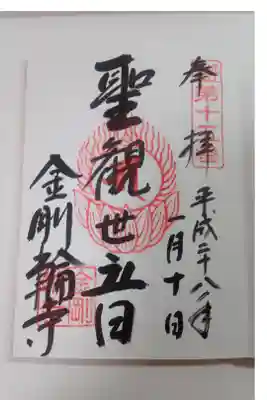 奉拝
平成二十八年
一月十日
聖観世音
金剛輪寺